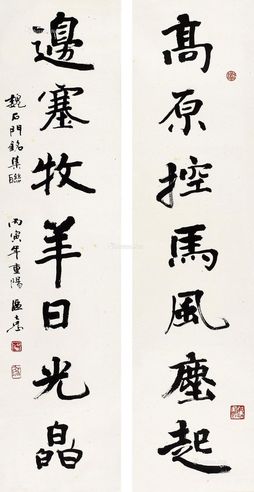 高原控馬風塵起
邊塞牧羊日光晶
魏石門銘集聯
丙寅年重陽